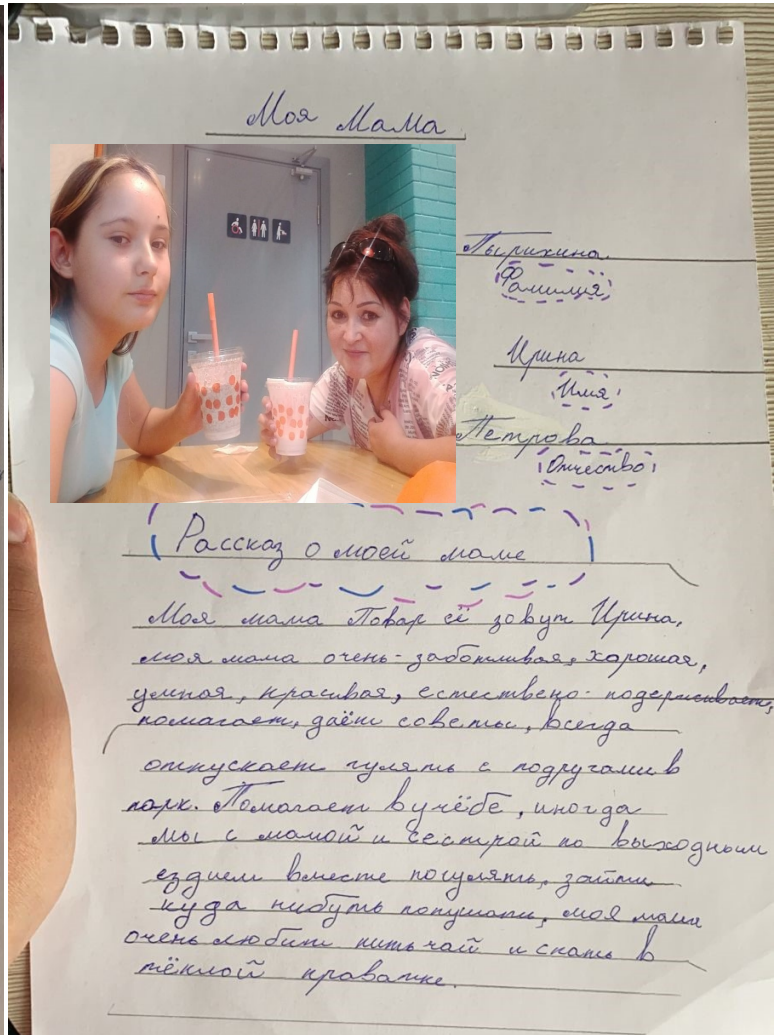 Моя Мама
Пырихина
Фамилия
Ирина
Имя
Петрова
Отчество
Рассказ о моей маме
Моя мама Повар её зовут Ирина,
моя мама очень-заботливая, хорошая,
умная, красивая, естествено-подерживает,
помагает, даёт советы, всегда
отпускает гулять с подругами в
парк. Помагает в учёбе, иногда
мы с мамой и сестрой по выходным
ездием вместе погулять, зайти
куда нибуть попушать, моя мама
очень любит пить чай и спать в
тёплой краватке.